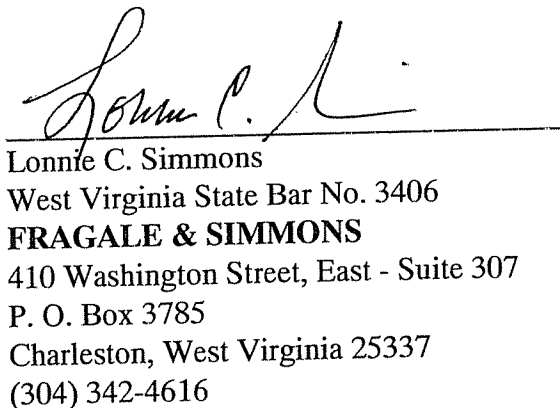 Lonnie C. Simmons
West Virginia State Bar No. 3406
FRAGALE & SIMMONS
410 Washington Street, East - Suite 307
P. O. Box 3785
Charleston, West Virginia 25337
(304) 342-4616